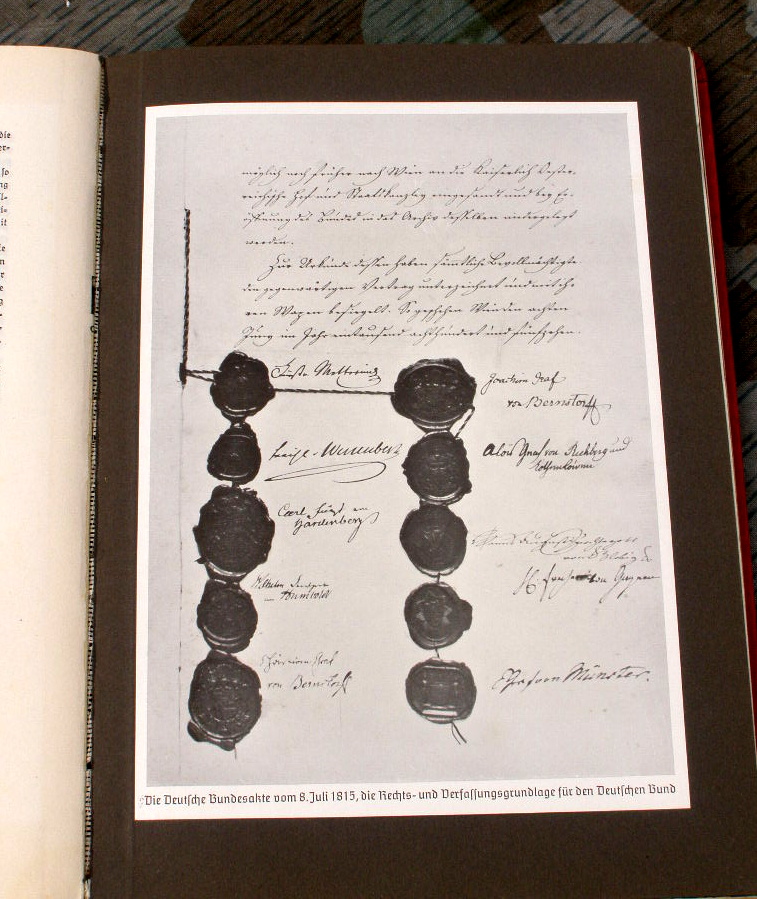 die
er-
so
ng
l-
i-
it
te
n
r
e
g
möglich noch früher nach Wien an die Kaiserlich Oester-
reichische Hof und Staatskanzley eingesandt und bey Er-
öffnung des Bundes in das Archiv desselben niedergelegt
werden.
Zur Urkunde dessen haben sämmtliche Bevollmächtigte
den gegenwärtigen Vertrag unterzeichnet und mit ih-
ren Wapen besiegelt. So geschehen Wien den achten
Juny im Jahr eintausend achthundert und fünfzehen.
Fürst Metternich
Joachim Graf
von Bernstorff
Wessenberg
Alois Graf von Rechberg und
Rothenlöwen
Carl Fürst von
Hardenberg
Wilhelm
Humboldt
von Gagern
Christian Graf
von Bernstorff
Graf von Münster.
Die Deutsche Bundesakte vom 8. Juli 1815, die Rechts- und Verfassungsgrundlage für den Deutschen Bund